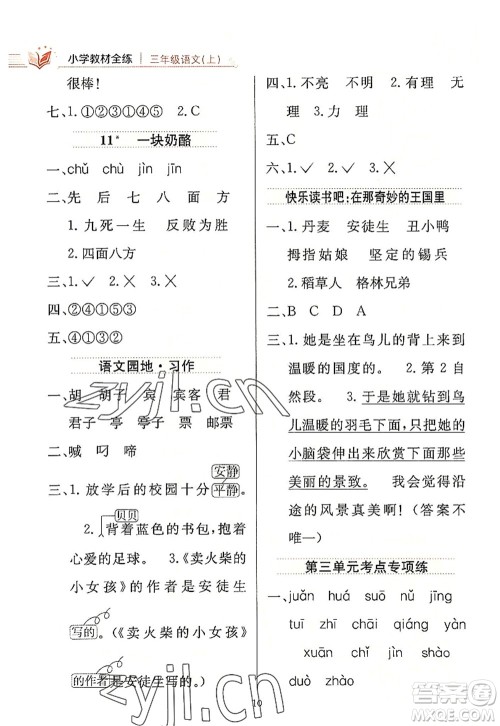 小学教材全练 三年级语文(上)
很棒!
七、1.①②③④⑤ 2.C
11* 一块奶酪
一、chǔ chù jìn jīn
二、先 后 七 八 面 方
1.九死一生 2.反败为胜
3.四面八方
三、1.✓ 2.╳ 3.╳
四、②④①⑤③
五、④①③②
语文园地·习作
一、胡 胡子 宾 宾客 君
君子 亭 亭子 票 邮票
二、喊 叼 啼
安静
三、1.放学后的校园十分平静。
贝贝
2.背着蓝色的书包,抱着
心爱的足球。 3.《卖火柴的
小女孩》的作者是安徒生
写的。(《卖火柴的小女孩》
的作者是安徒生写的。)
四、1.不亮 不明 2.有力
有理
五、C
六、1.✓ 2.✓ 3.╳
快乐读书吧:在那奇妙的王国里
一、1.丹麦 安徒生 丑小鸭
拇指姑娘 坚定的锡兵
2.稻草人 格林兄弟
二、B C D A
三、1.她坐在鸟儿的背上来到
温暖的国度的。 2.第2自
然段。 于是她就钻到鸟
儿温暖的羽毛下面,只把
小脑袋伸出来欣赏下面那些
美丽的景致。 我会觉得沿
途的风景真美啊!(答案不
唯一)
第三单元考点专项练
一、juǎn huá suō nuó jīng
tuǐ suǒ zhāi gāng xián
duò zhào
10
zyjl.cn
zyjl.cn
答案圈
MXQE.COM